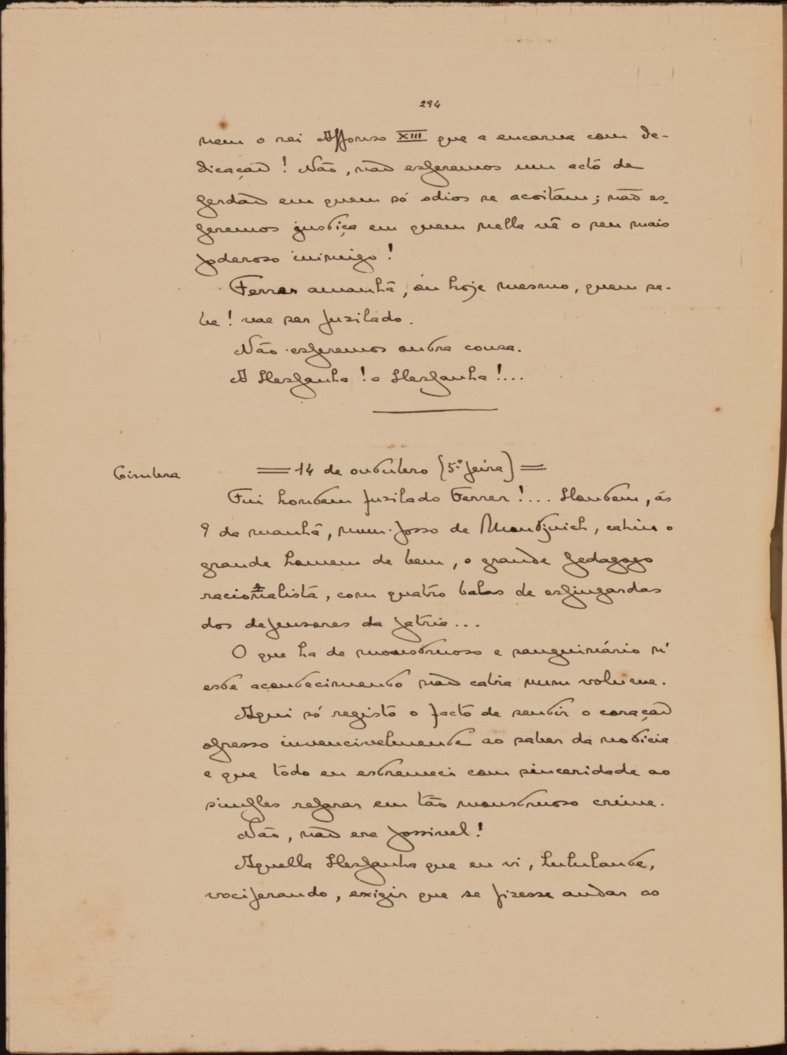 294
nem o rei Affonso XIII que a encarna com de-
dicação! Não, não esperemos um acto de
perdão em quem só odios se acoitam; não es-
peremos justiça em quem nella vê o seu mais
poderoso inimigo!
Ferrer amanhã, ou hoje mesmo, quem sa-
be! vae ser fusilado.
Não esperemos outra cousa.
A Hespanha! a Hespanha!...
Coimbra = 14 de outubro (5.ª feira) =
Fui hontem fusilado Ferrer!... Hontem, ás
9 da manhã, num fosso de Montjuich, cahiu o
grande homem de bem, o grande pedagogo
racionalista, com quatro balas de espingardas
dos defensores da patria...
O que ha de monstruoso e sanguinário n'
este acontecimento não cabia num volume.
Aqui só registo o facto de sentir o coração
opresso invencivelmente ao saber da noticia
e que todo eu estremeci com sinceridade ao
simples reparar em tão monstruoso crime.
Não, não era possivel!
Aquella Hespanha que eu vi, hululante,
vociferando, exigir que se fizesse andar ao